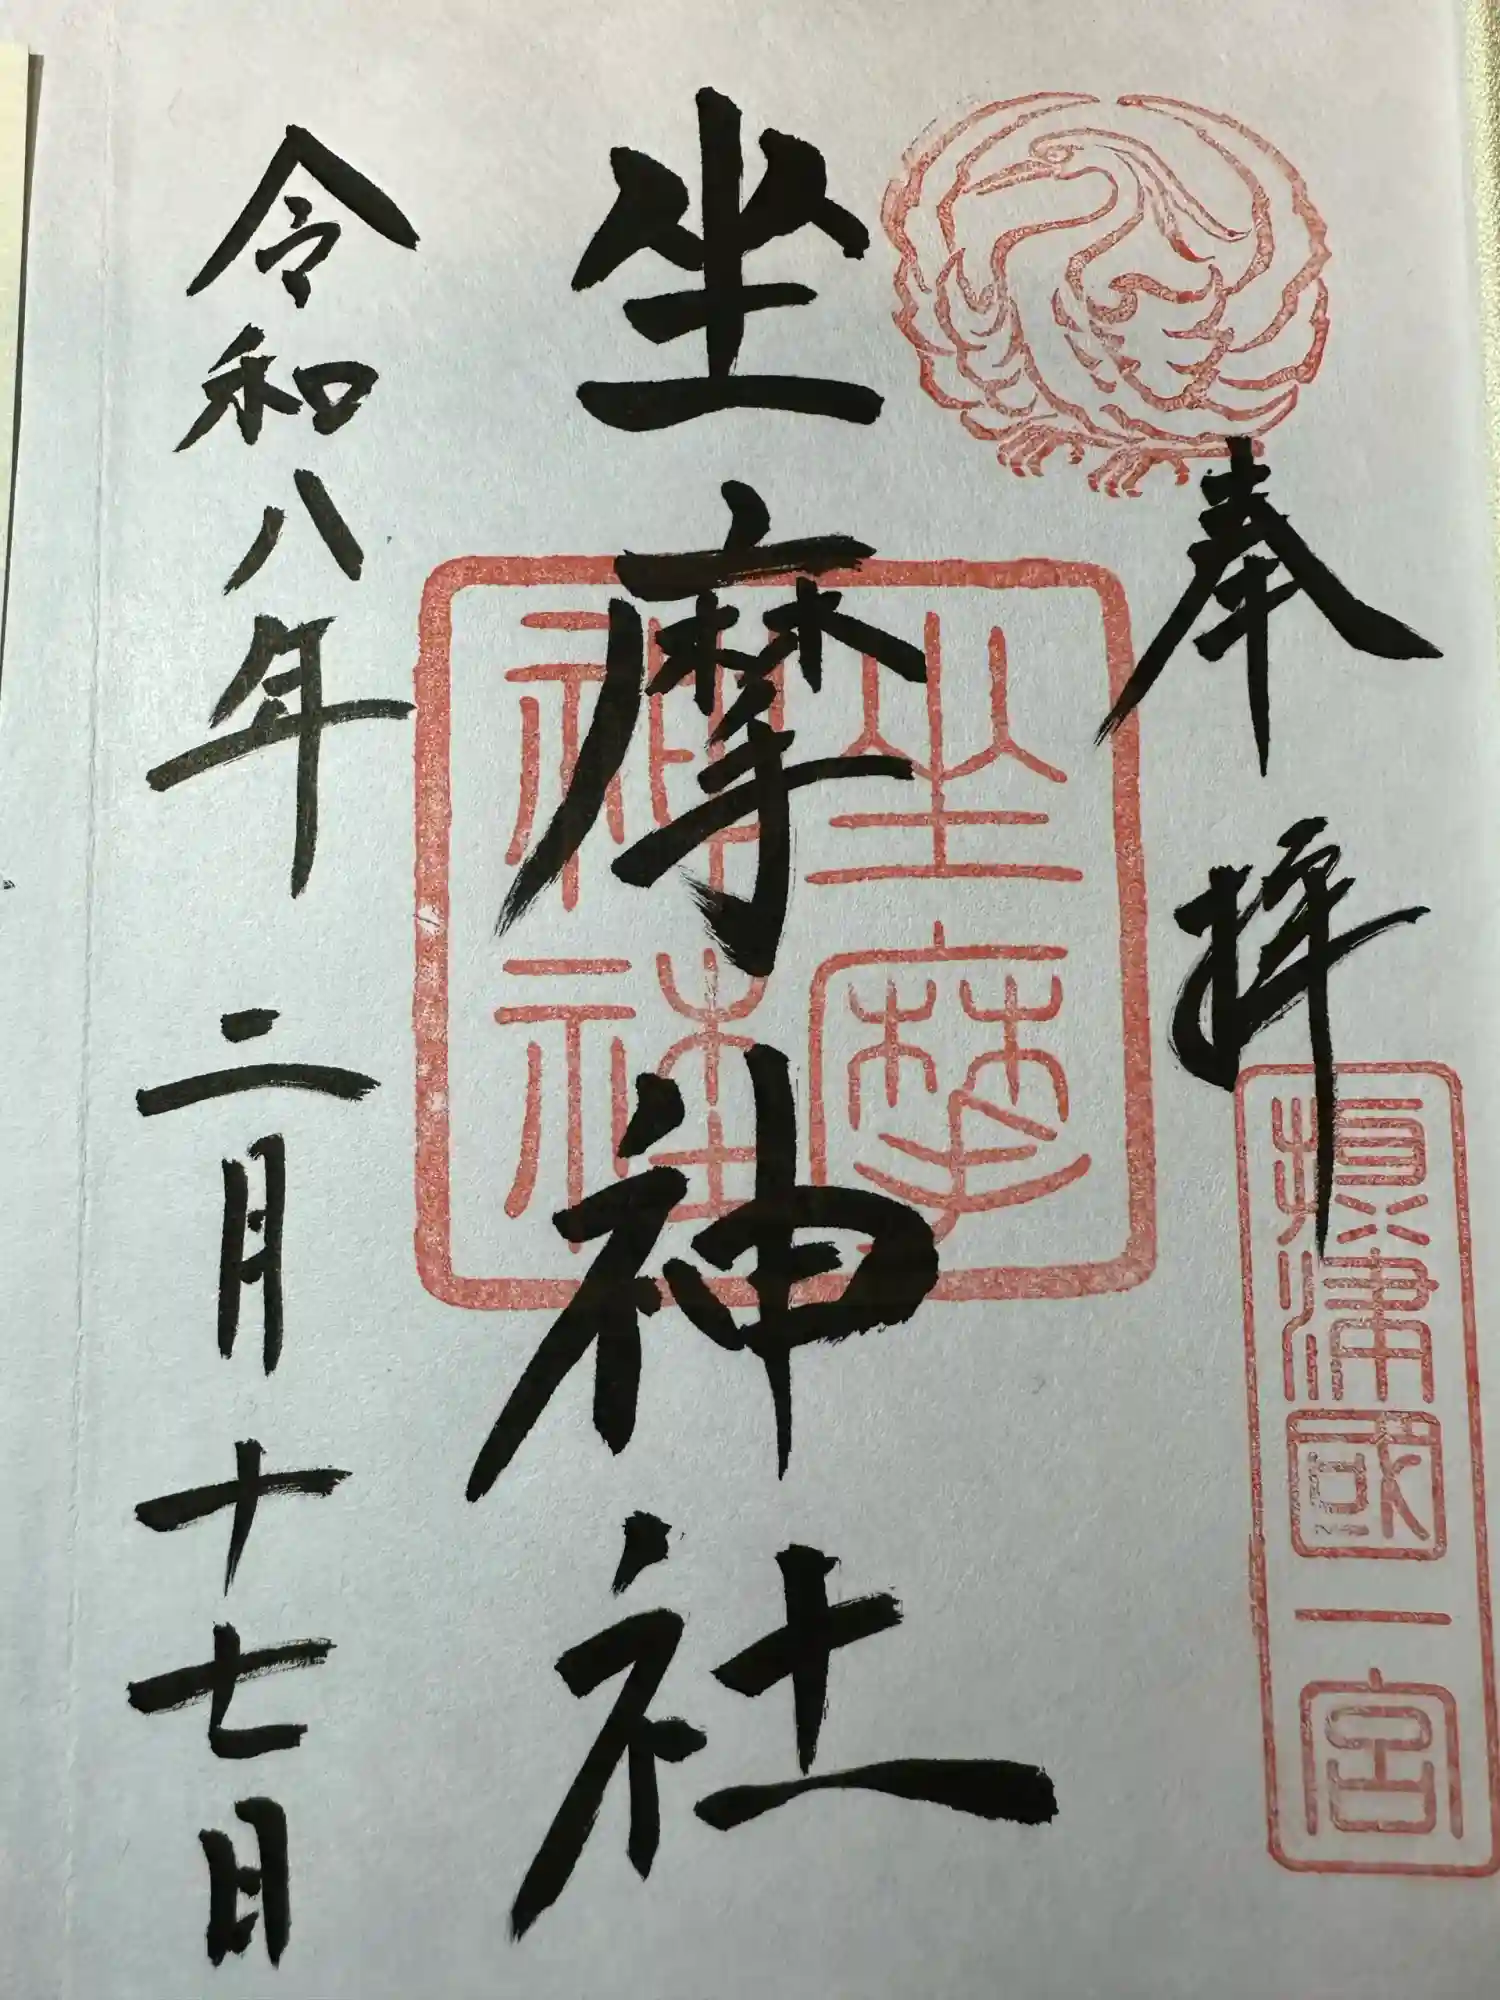 奉拝
攝津國一宮
坐摩神社
坐摩神社
令和八年二月十七日